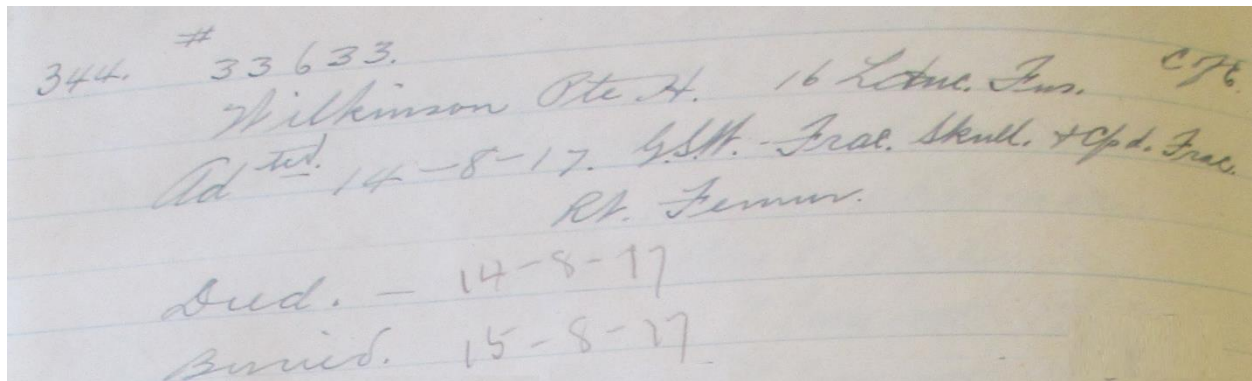 344. # 33633.
Wilkinson Pte H. 16 Lanc. Fus. C of E.
Ad ted. 14-8-17. G.S.W. - Frac. Skull. + Cpd. Frac.
Rt. Femur.
Died. - 14-8-17
Buried. 15-8-17